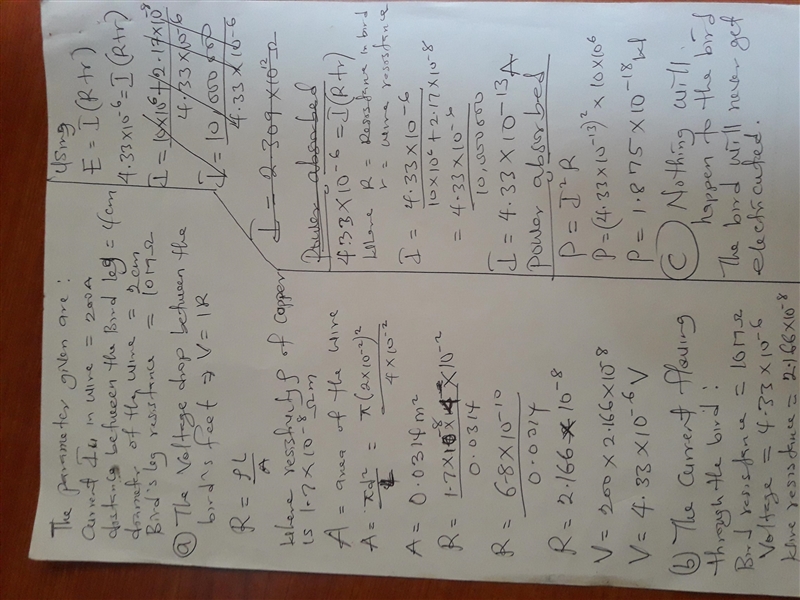 The parameter given are:
Current I in wire = 200A
distance between the Bird leg = 4cm
diameter of the wire = 2cm
Bird's leg resistance = 10MΩ
(a) The Voltage drop between the
bird's feet ⇒ V = IR
R = ρL/A
Where resistivity ρ of Copper
is 1.7×10^-8 Ωm
A = area of the wire
A = πd²/4 = π(2×10^-2)²/4×10^-2
A = 0.0314m²
R = 1.7×10^-8×4×10^-2/0.0314
R = 6.8×10^-10/0.0314
R = 2.166×10^-8
V = 200×2.166×10^-8
V = 4.33×10^-6 V
(b) The Current flowing
through the bird:
Bird resistance = 10MΩ
Voltage = 4.33×10^-6
Wire resistance = 2.166×10^-8
Using
E = I(R+r)
4.33×10^-6 = I(R+r)
I = 10×10^6+2.17×10^-8/4.33×10^-6
I = 10,000,000/4.33×10^-6
I = 2.309×10^12 Ω
Power absorbed
4.33×10^-6 = I(R+r)
Where R = Resistance in bird
r = wire resistance
I = 4.33×10^-6/10×10^6+2.17×10^-8
= 4.33×10^-6/10,000,000
I = 4.33×10^-13 A
Power absorbed
P = I²R
P = (4.33×10^-13)²×10×10^6
P = 1.875×10^-18 W
(C) Nothing will
happen to the bird
The bird will never get
electrocuted.